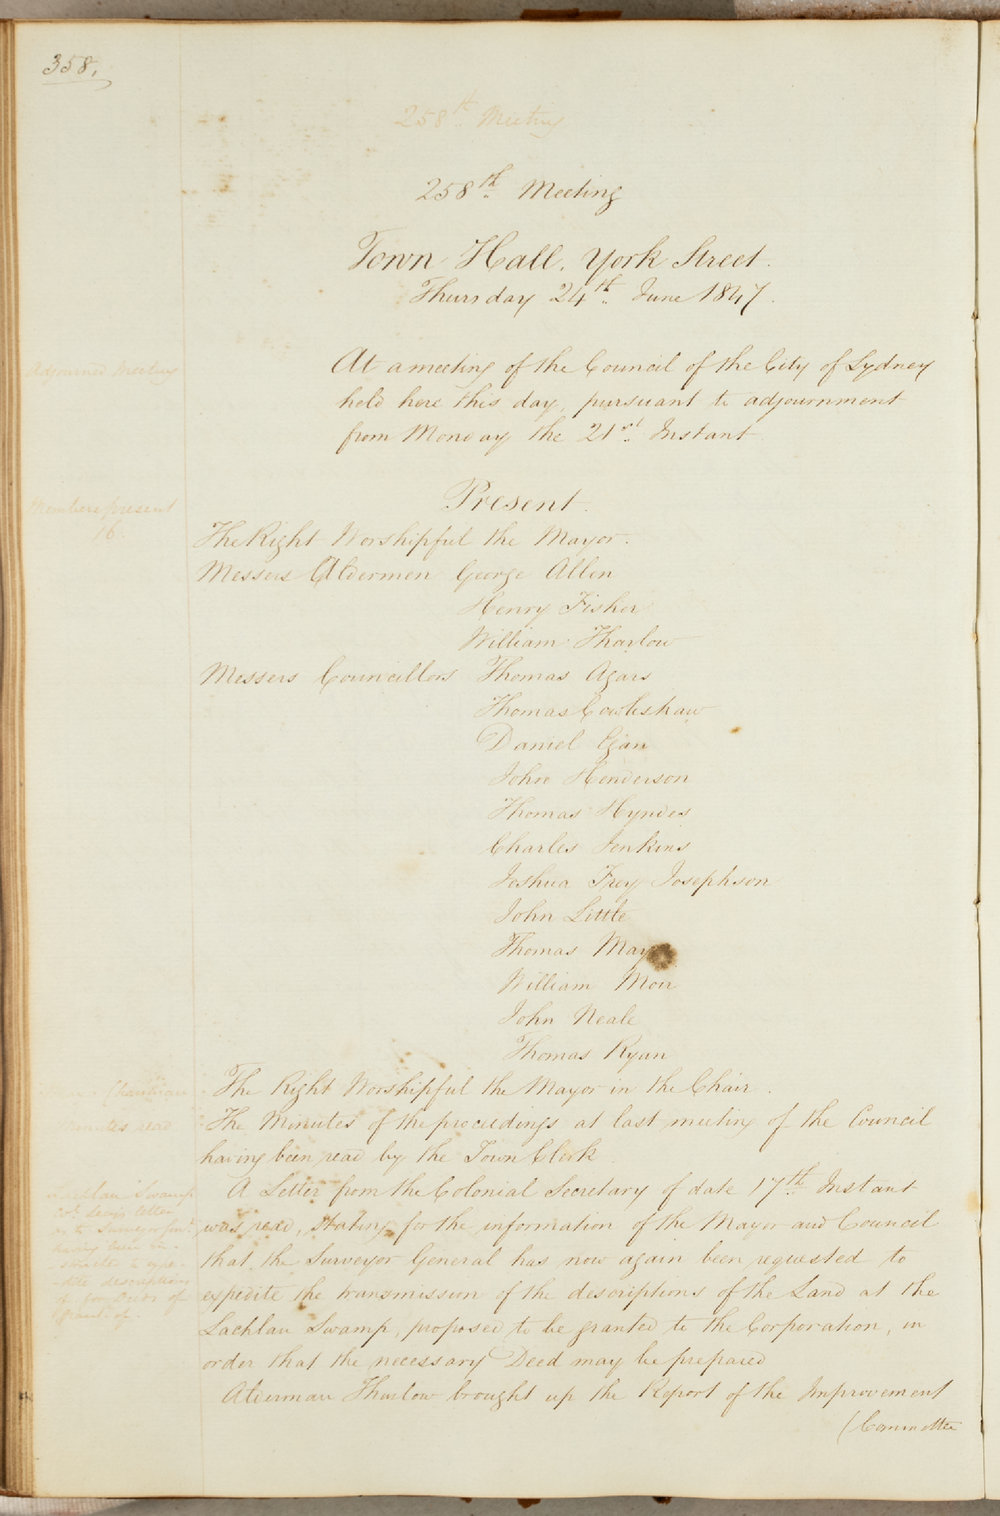 358.
258th Meeting
258th Meeting
Town Hall. York Street.
Thursday 24th June 1847.
Adjourned Meeting
At a meeting of the Council of the City of Sydney
held here this day, pursuant to adjournment
from Monday the 21st Instant
Present.
Members present
16.
The Right Worshipful the Mayor.
Messers Aldermen George Allen
Henry Fisher
William Thurlow
Messers Councillors Thomas Agars
Thomas Cowlishaw
Daniel Egan
John Henderson
Thomas Hyndes
Charles Jenkins
Joshua Frey Josephson
John Little
Thomas May
William Moir
John Neale
Thomas Ryan
Chairman
The Right Worshipful the Mayor in the Chair.
Minutes read
The Minutes of the proceedings at last meeting of the Council
having been read by the Town Clerk.
Lachlan Swamp
Col. Secy's letter
as to Surveyor Genl.
having been
to expe-
-dite descriptions
of for Deeds of
Grant of.
A Letter from the Colonial Secretary of date 17th Instant
was read, stating for the information of the Mayor and Council
that the Surveyor General has now again been requested to
expedite the transmission of the descriptions of the Land at the
Lachlan Swamp, proposed to be granted to the Corporation, in
order that the necessary Deed may be prepared
Alderman Thurlow brought up the Report of the Improvement
(Committee